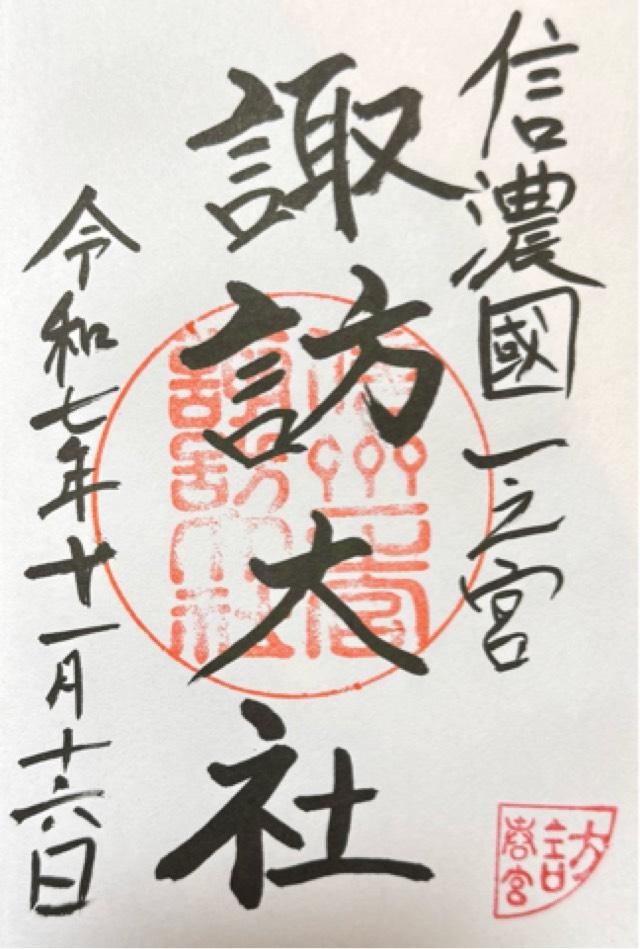 信濃國一之宮
諏訪大社
令和七年十一月十六日
諏訪大社
春宮